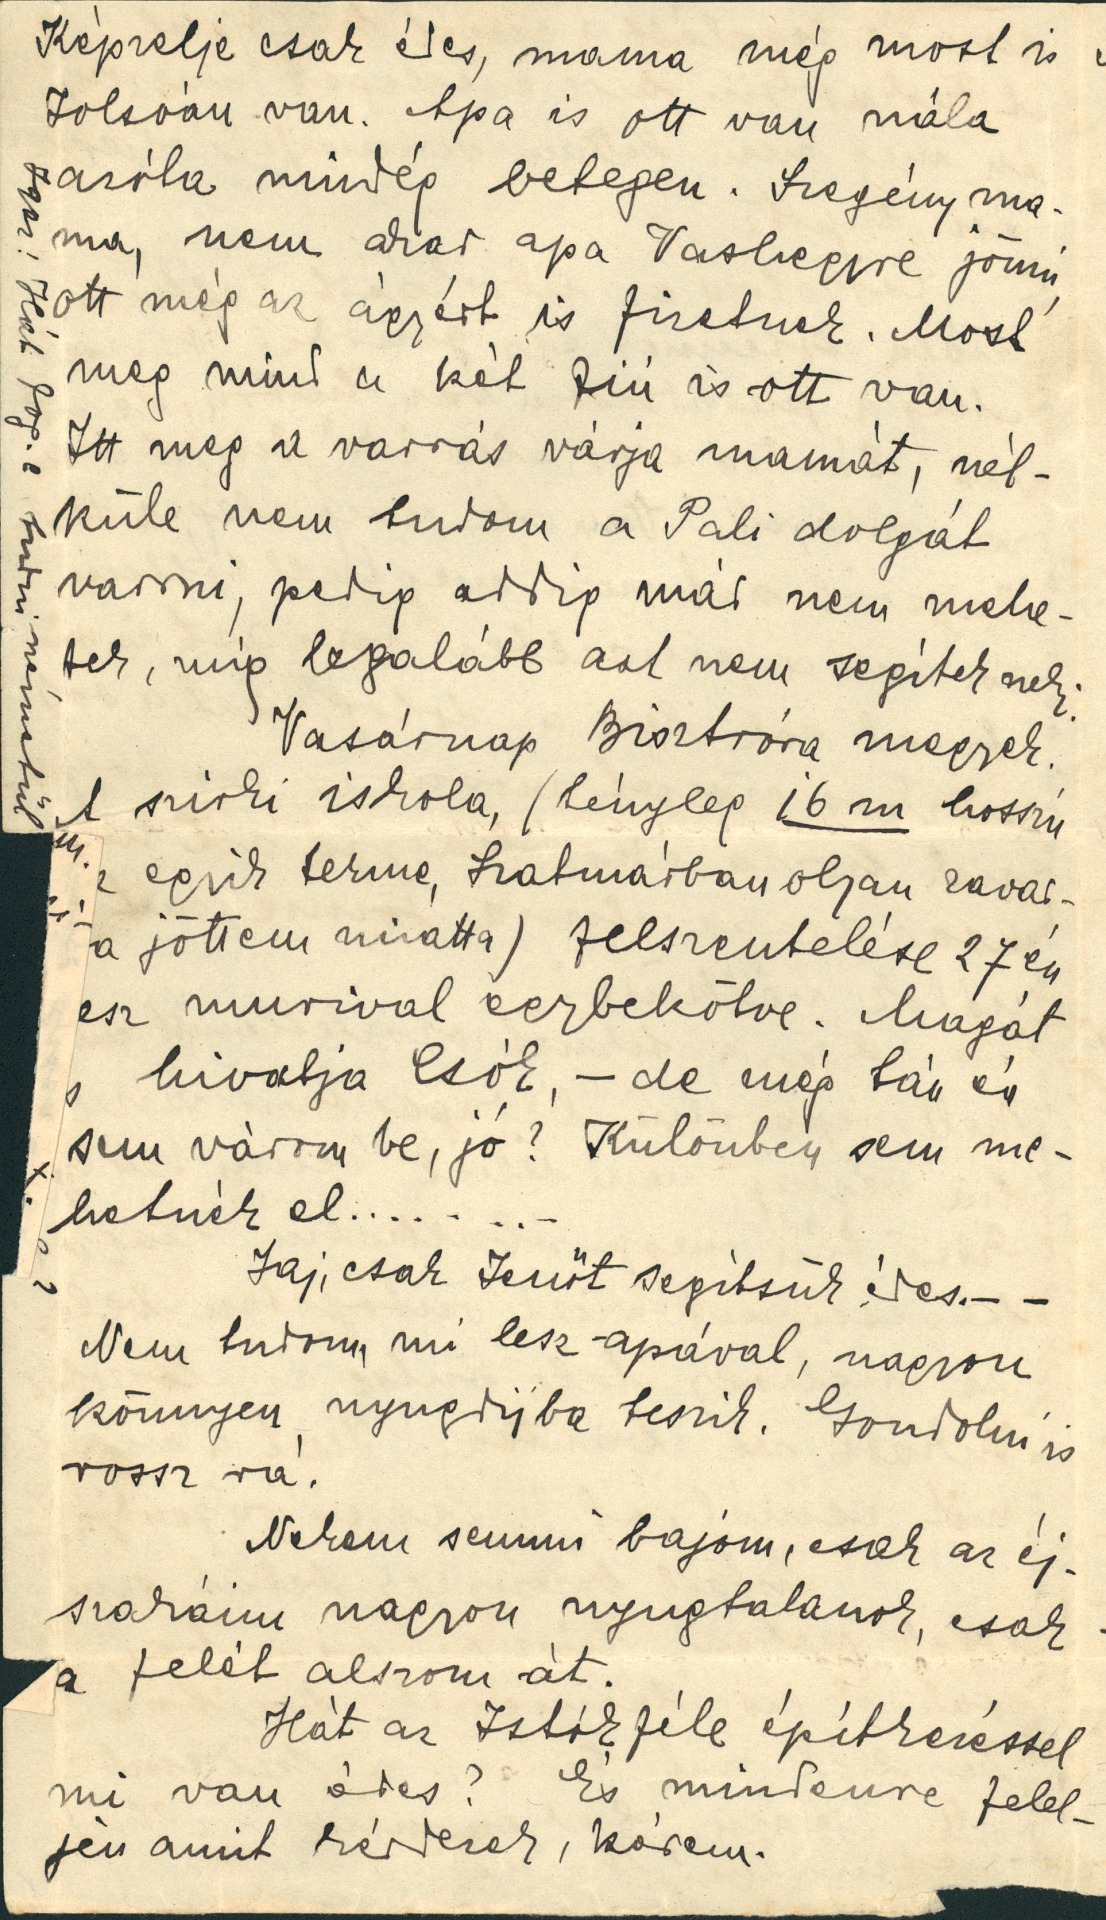 Képzelje csak édes, mama még most is
Zolsóán van. Apa is ott van nála
azóta mindég betegen. Szegény ma-
ma, nem akar apa Vashegyre jönni,
ott még az ágyért is fizetnek. Most
meg mind a két fiú is ott van.
Itt meg a varrás várja mamát, nél-
küle nem tudom a Pali dolgát
varrni, pedig addig már nem mehe-
tek, míg legalább azt nem segítek neki.
Vasárnap Bisztróra megyek.
A sziski iskola, (tényleg 16 m hosszú
z egyik terme, Szatmárban olyan zavar-
a jöttem miatta) felszentelése 27 én
esz murival egybekötve. Magát
s hivatja Csók, – de még tán én
sem várom be, jó? Különben sem me-
hetnék el.........–
Jaj, csak Jenőt segítsük édes. – –
Nem tudom, mi lesz apával, nagyon
könnyen nyugdíjba teszik. Gondolni is
rossz rá.
Nekem semmi bajom, csak az éj-
szakáim nagyon nyugtalanok, csak
a felét alszom át.
Hát az Istók féle építkezéssel
mi van édes? És mindenre felel-
jen amit kérdezek, kérem.
Igaz! Hát fog-e tudni németül